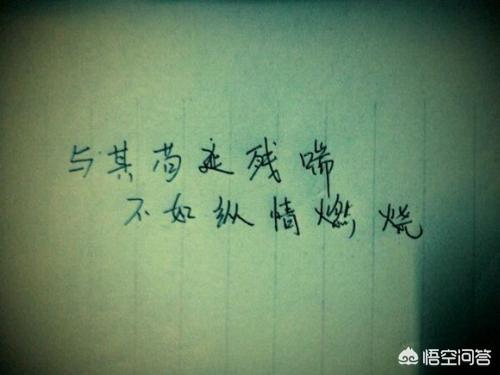 与其苟延残喘
不如纵情燃烧
悟空问答